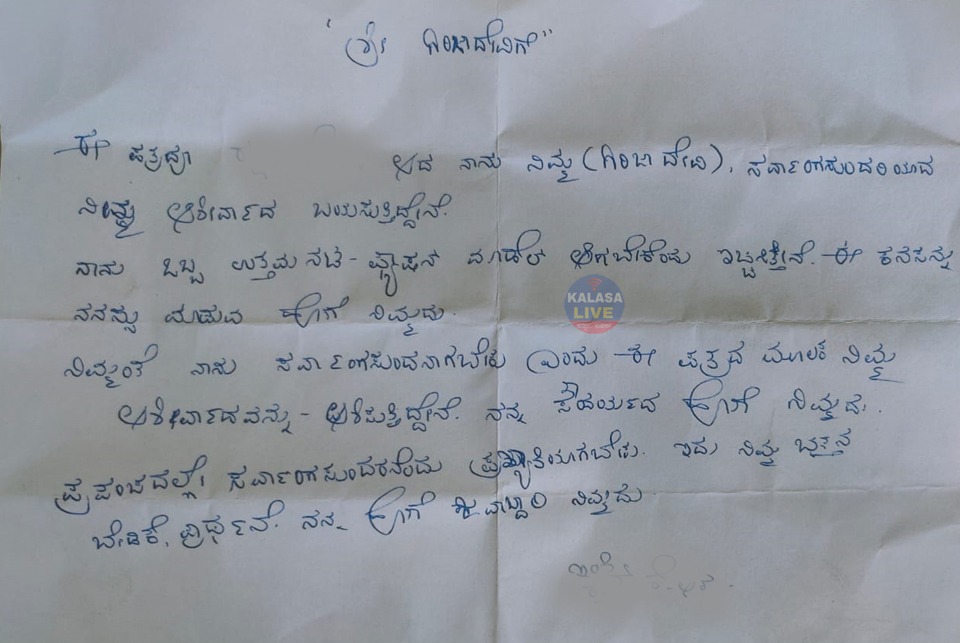 "ಶ್ರೀ ಗಿರಿಜಾದೇವಿಗೆ"
ಈ ಪತ್ರದ್ವಾ ನಾನು ನಿಮ್ಮ (ಗಿರಿಜಾ ದೇವಿ), ಸರ್ವಾಂಗಸುಂದರಿಯಾದ
ನಿಮ್ಮ ಆಶೀರ್ವಾದ ಬಯಸುತ್ತಿದ್ದೇನೆ.
ನಾನು ಒಬ್ಬ ಉತ್ತಮ ನಟ - ಫ್ಯಾಷನ್ ಮಾಡೆಲ್ ಆಗಬೇಕೆಂದು ಇಚ್ಛಿಸುತ್ತೇನೆ. ಈ ಕನಸನ್ನು
ನನಸ್ಸು ಮಾಡುವ ಹೊಣೆ ನಿಮ್ಮದು.
KALASA LIVE
ನಿಮ್ಮಂತೆ ನಾನು ಸರ್ವಾಂಗಸುಂದನಾಗಬೇಕು ಎಂದು ಈ ಪತ್ರದ ಮೂಲಕ ನಿಮ್ಮ
ಆಶೀರ್ವಾದವನ್ನು - ಆಶಿಸುತ್ತಿದ್ದೇನೆ. ನನ್ನ ಸೌಂದರ್ಯದ ಹೊಣೆ ನಿಮ್ಮದು.
ಪ್ರಪಂಚದಲ್ಲೇ ಸರ್ವಾಂಗಸುಂದರನೆಂದು ಪ್ರಖ್ಯಾತಿಯಾಗಬೇಕು. ಇದು ನಿಮ್ಮ ಭಕ್ತನ
ಬೇಡಿಕೆ, ಪ್ರಾರ್ಥನೆ. ನನ್ನ ಹೊಣೆ ಜವಾಬ್ದಾರಿ ನಿಮ್ಮದು.
ಇಂತಿ